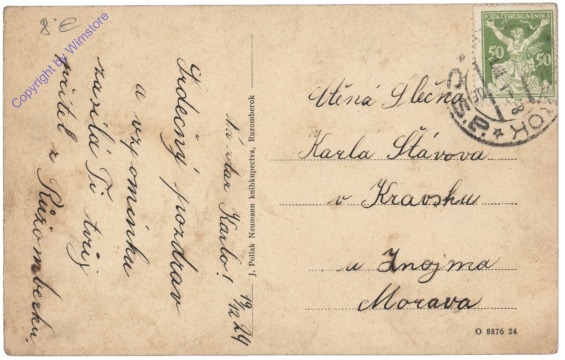 8 €
Copyright by Wimstore
Na zdar Karlo!
19/XI 24
Srdečný pozdrav
a vzpomínku
zasílá Ti tvůj
přítel z Růžomberku.
J. Pollak Neumann knihkupectva, Ruzomberok
POŠTA ČESKOSLOVENSKÁ
50 50
ČSP
OK
Ctěná Slečna
Karla Šťávova
v Kravsku
u Znojma
Morava
O 8876 24